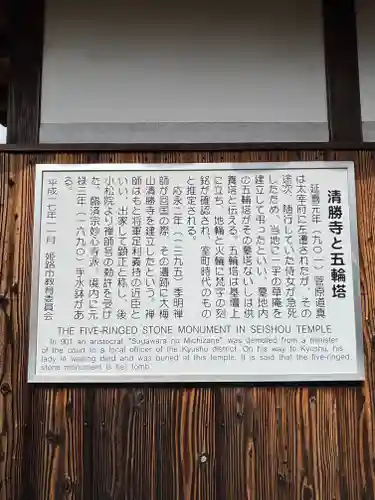 清勝寺と五輪塔
延喜元年(九〇一)菅原道真
は太宰府に左遷されたが、その
途次、随行していた侍女が急死
したため、当地に一宇の草庵を
建立して弔ったといい、墓地内
の五輪塔がその墓塔ないしは供
養塔と伝える。五輪塔は基壇上
に立ち、地輪と火輪に梵字の刻
銘が確認され、室町時代のもの
と推定される。
応永二年(一三九五)季明禅
師が回国の際、その遺跡に大梅
山清勝寺を建立したという。禅
師はもと将軍足利義持の近臣と
いい、出家して顕正と称し、後
小松院より禅師号の勅許を受け
た。臨済宗妙心寺派。境内に元
禄三年(一六九〇)手水鉢があ
る。
平成一七年一一月 姫路市教育委員会
THE FIVE-RINGED STONE MONUMENT IN SEISHOU TEMPLE
In 901 an aristocrat "Sugawara no Michizane" was demoted from a minister
of the court to a local officer of the Kyushu district. On his way to Kyushu, his
lady in waiting died and was buried at this temple. It is said that the five-ringed
stone monument is her tomb.